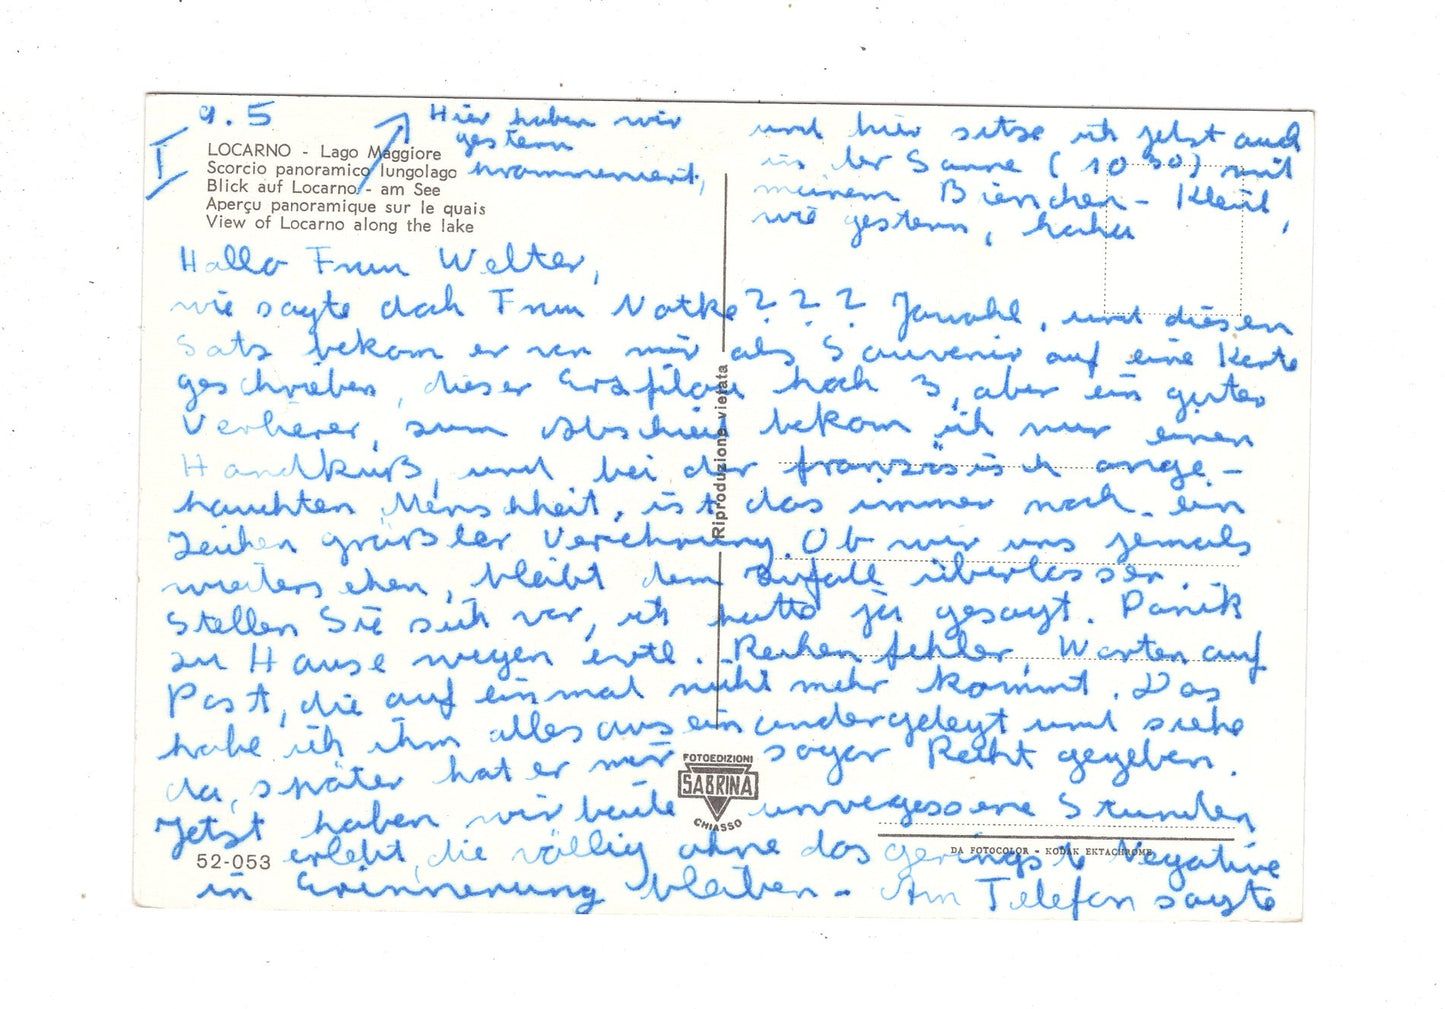 9.5
I
Hier haben wir
gestern
LOCARNO - Lago Maggiore
Scorcio panoramico lungolago
Blick auf Locarno - am See
Aperçu panoramique sur le quais
View of Locarno along the lake
und hier sitze ich jetzt auch
in der Sonne (10 30) mit
meinem Bienchen-Kleid,
wie gestern, haha
Hallo Frau Welter,
wie sagte doch Frau Natke ? ? ? Jawohl, und diesen
Satz bekam er von mir als Souvenir auf eine Karte
geschrieben, dieser hoch 3, aber ein guter
Verlierer, zum Abschied bekam ich nur einen
Handkuß, und bei der französisch ange-
hauchten Menschheit, ist das immer noch ein
Zeichen größter Verehrung. Ob wir uns jemals
wiedersehen, bleibt dem Zufall überlassen.
Stellen Sie sich vor, ich hatte ja gesagt. Panik
zu Hause wegen evtl. Rechenfehler, Warten auf
Post, die auf einmal nicht mehr kommt. Das
habe ich ihm alles auseinandergelegt und siehe
da, später hat er mir sogar Recht gegeben.
Jetzt haben wir beide unvergessene Stunden
erlebt, die völlig ohne das geringste Negative
in Erinnerung bleiben - Am Telefon sagte
Riproduzione vietata
FOTOEDIZIONI
SABRINA
CHIASSO
52-053
DA FOTOCOLOR - KODAK EKTACHROME